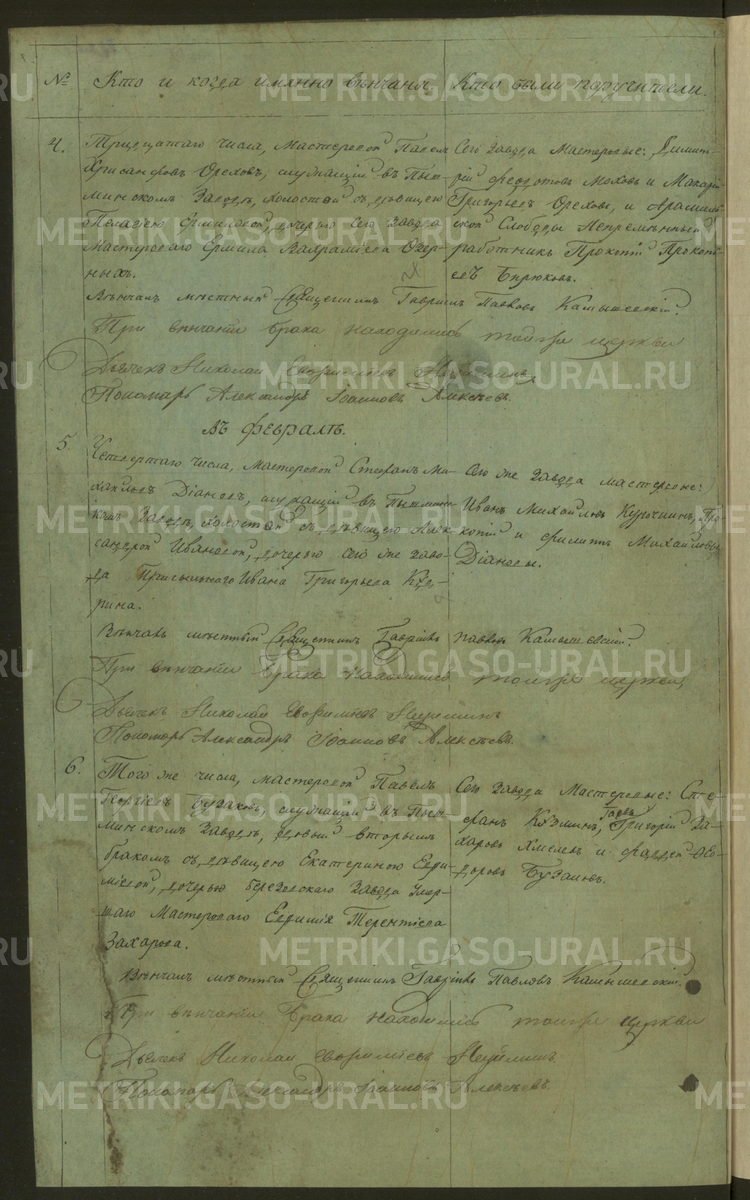 № Кто и когда имянно вѣнчаны. Кто были поручители.
4. Тридцатаго числа, Мастеровой Павел
Хрисанфовъ Ореховъ, служащій въ Пыш-
минскомъ Заводѣ, холостой съ дѣвицею
Пелагѣею Ермиловой, дочерью Сего Завода
Мастероваго Ермила
ныхъ.
Сего Завода Мастеровые: Димит-
рій Федотовъ Моховъ и Макарій
Григорьевъ Ореховъ, и Арамиль-
ской Слободы Непремѣнный
работникъ Прокопій Прокопь-
евъ Бирюковъ.
Вѣнчалъ мѣстный Священникъ Гавриилъ Павловъ Камышевскій.
При вѣнчаніи брака находились тойже церкви
Дьячекъ Николай
Пономарь Александръ Іоанновъ Алексѣевъ.
Въ Февралѣ.
5. Четвертаго числа, Мастеровой Стефанъ Ми-
хайловъ Діановъ, служащій въ Пышминс-
комъ Заводѣ, холостой съ дѣвицею Алек-
сандрой Ивановой, дочерью сего же заво-
да Присыльнаго Ивана Григорьева
рина.
Сего же Завода мастеровые:
Иванъ Михайловъ Курочкинъ, Про-
копій и Филиппъ Михайловы
Діановы.
Вѣнчалъ мѣстный Священникъ Гавріилъ Павловъ Камышевскій.
При вѣнчаніи Брака находились тойже церкви
Дьячекъ Николай
Пономарь Александръ Іоанновъ Алексѣевъ.
6. Того же числа, мастеровой Павелъ
Георгіевъ Бузаковъ, служащій въ Пыш-
минскомъ Заводѣ, вдовый вторымъ
бракомъ съ дѣвицею Екатериною Евфи-
міевой, дочерью Березовскаго Завода Умер-
шаго Мастероваго Евфимія Терентіева
Захарова.
Сего Завода Мастеровые: Сте-
фанъ Кузминъ, Григорій За-
харовъ Хмелевъ и Фаддей Фео-
доровъ
Вѣнчалъ мѣстный Священникъ Гавріилъ Павловъ Камышевскій.
При вѣнчаніи Брака находились тойже церкви
Дьячекъ Николай
Пономарь Александръ Іоанновъ Алексѣевъ.
METRIKI.GASO-URAL.RU